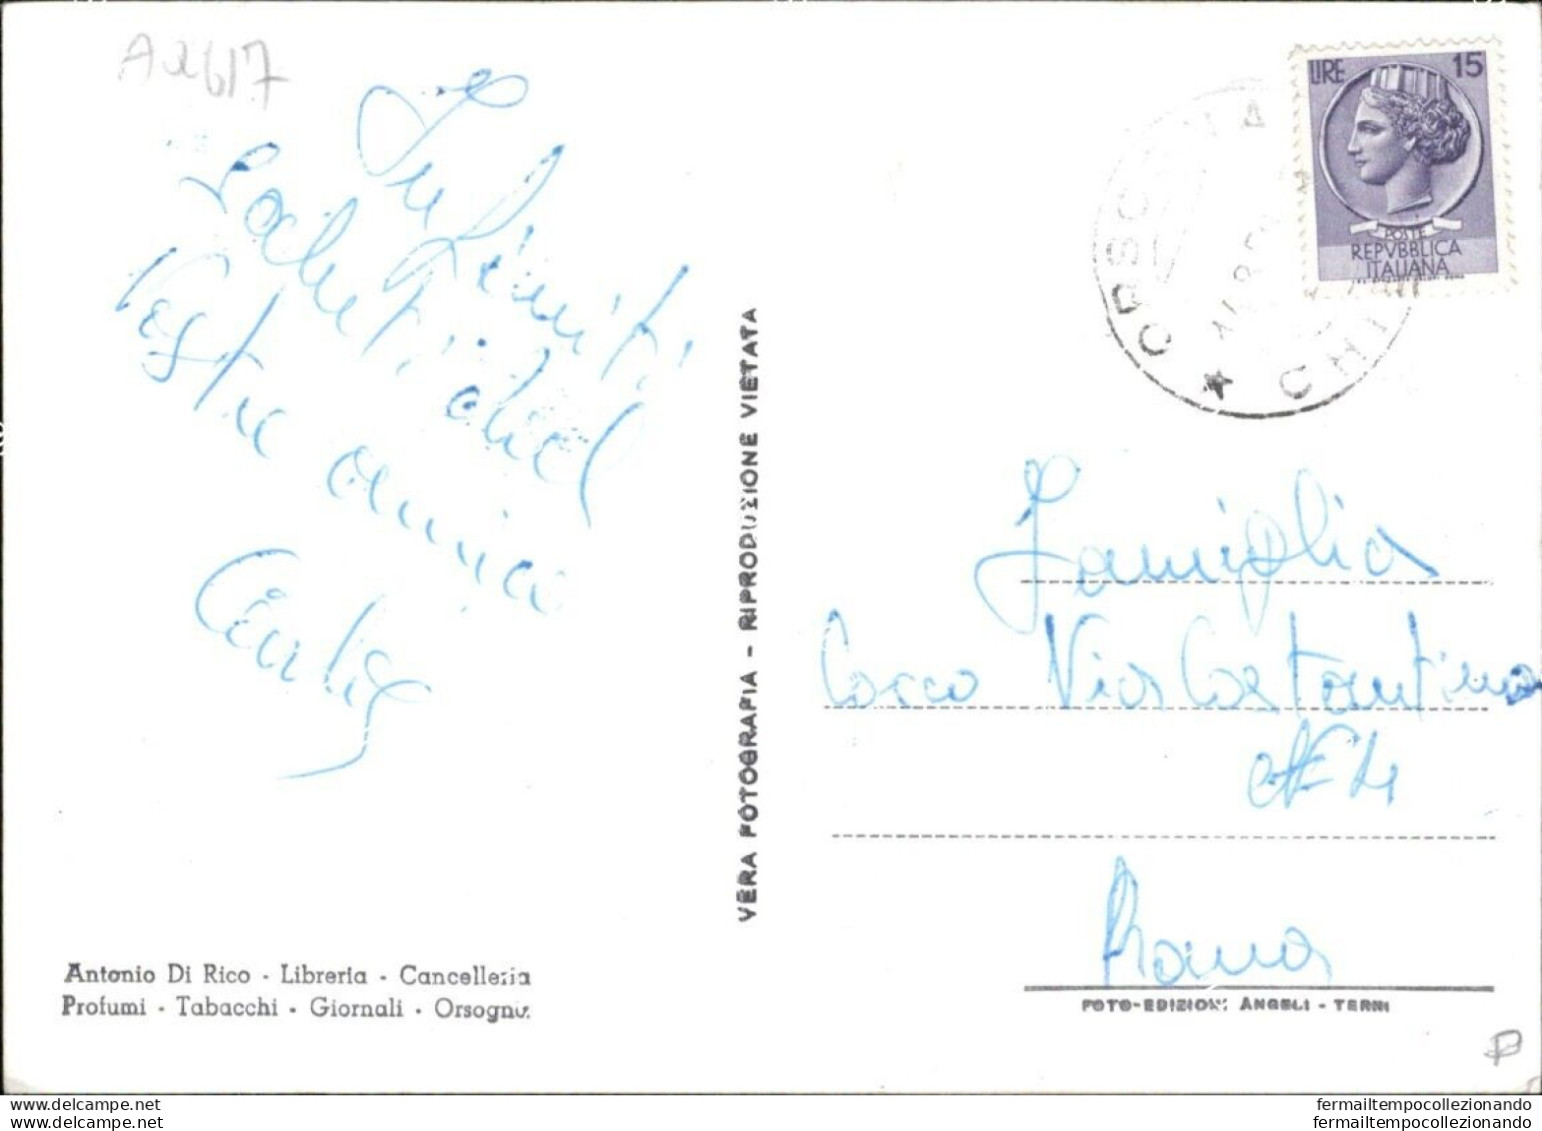 A2617
Infiniti
saluti dal
Vostra amica
LIRE 15
POSTE
REPVBBLICA
ITALIANA
ORSOGNA
CHIETI
VERA FOTOGRAFIA - RIPRODUZIONE VIETATA
Famiglia
Cocco Via Costantino
N° 4
Roma
Antonio Di Rico - Libreria - Cancelleria
Profumi - Tabacchi - Giornali - Orsogna
FOTO-EDIZIONI ANGELI - TERNI
P
fermailtempocollezionando
fermailtempocollezionando
www.delcampe.net
www.delcampe.net